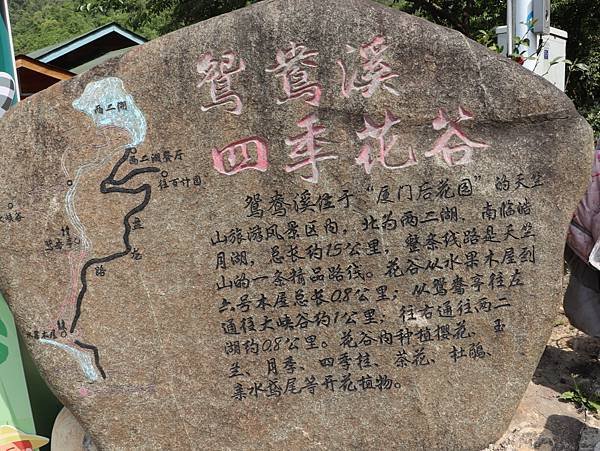 鸳鸯溪
四季花谷
鸳鸯溪位于“厦门后花园”的天竺
山旅游风景区内，北为两二湖，南临皓
月湖，总长约1.5公里，整条线路是天竺
山的一条精品路线。花谷从水果木屋到
六号木屋总长0.8公里；从鸳鸯亭往左
通往大峡谷约1公里；往右通往两二
湖约0.8公里。花谷内种植樱花、玉
兰、月季、四季桂、茶花、杜鹃、
亲水鸢尾等开花植物。
两二湖
两二湖餐厅
往百竹园